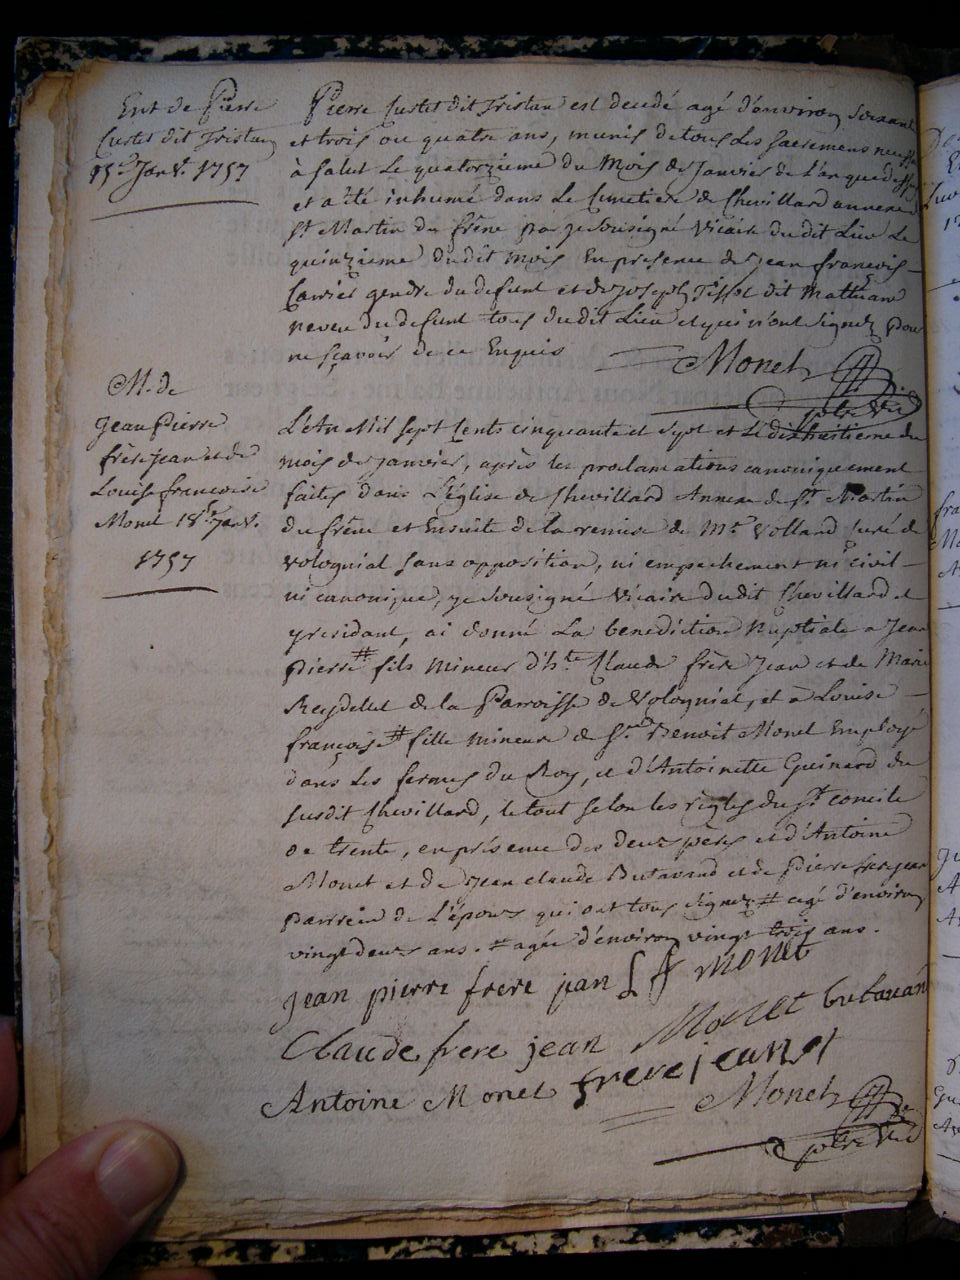 Ent de Pierre
Curtet dit Tristan
15e Janv. 1757
Pierre Curtet dit Tristan est decedé agé d'environ soixante
et trois ou quatre ans, munis de tous les sacremens
à salut le quatorzieme du Mois de Janvier de l'an que dessus
et a été inhumé dans le Cimetiere de Chevillard annexe
St Martin du frêne par je sousigné Vicaire du dit Lieu Le
quinzieme du dit mois En presence de Jean francois
Carrier gendre du defunt et de Joseph Tissot dit
neveu du defunt tous du dit Lieu et qui n'ont signez pour
ne sçavoir de ce Enquis Monet
ptre Vic
M. de
Jean Pierre
frère Jean et de
Louise francoise
Monet 18e Janv.
1757
L'An Mil sept Cents cinquante et sept et Le dixhuitieme du
mois de janvier, après les proclamations canoniquement
faites dans L'église de Chevillard Annexe de St Martin
du frêne et Ensuite de la remise de Mr Vollard Curé de
Volognat sans opposition, ni empechement ni civil
ni canonique, je sousigné Vicaire du dit Chevillard et
y residant, ai donné La benediction Nuptiale a Jean
Pierre # fils Mineur d'h.te Claude frère Jean et de Marie
Reydellet de la Parroisse de Volognat, et a Louise
françoise # fille mineure de Sr Benoit Monet Employé
dans les fermes du Roy, et d'Antoinette Guinard du
susdit Chevillard, le tout selon les règles du St concile
de trente, en présence des deux pères et d'Antoine
Monet et de Jean claude Butavand et de Pierre frerejean
parrein de L'époux qui ont tous signez # agé d'environ
vingt deux ans. # agée d'environ vingt trois ans.
Jean pierre frere jan L F monet
Claude frere jean Monet butavan
Antoine Monet frerejean
Monet
ptre Vic